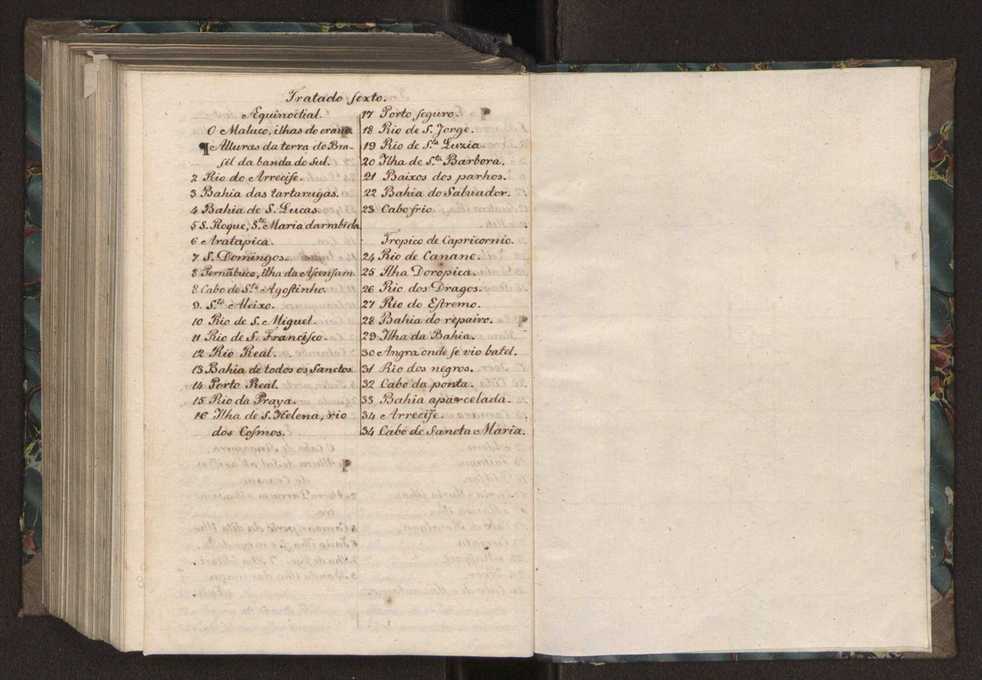 Tratado sexto.
Æquinoctial.
0 Maluco, ilhas do crauo
¶ Alturas da terra do Bra-
sil da banda do Sul.
2 Rio do Arrecife.
3 Bahia das tartarugas.
4 Bahia de S. Lucas.
5 S. Roque, S.ta Maria darrabida
6 Aratapica.
7 S. Domingos.
8 Pernãbuco, ilha da Ascensam
8 Cabo de S.to Agostinho.
9 S.to Aleixo.
10 Rio de S. Miguel.
11 Rio de S. Francisco.
12 Rio Real.
13 Bahia de todos os Sanctos
14 Porto Real.
15 Rio da Praya.
16 Ilha de S. Helena, rio
dos Cosmos.
17 Porto seguro.
18 Rio de S. Jorge.
19 Rio de S.ta Luzia.
20 Ilha de S.ta Barbora.
21 Baixos dos parhos.
22 Bahia do Saluador.
23 Cabo frio.
Tropico de Capricornio.
24 Rio de Canane.
25 Ilha Doropica.
26 Rio dos Dragos.
27 Rio do Estremo.
28 Bahia do repairo.
29 Ilha da Bahia.
30 Angra onde se vio batel.
31 Rio dos negros.
32 Cabo da ponta.
33 Bahia aparcelada.
34 Arrecife.
34 Cabo de Sancta Maria.